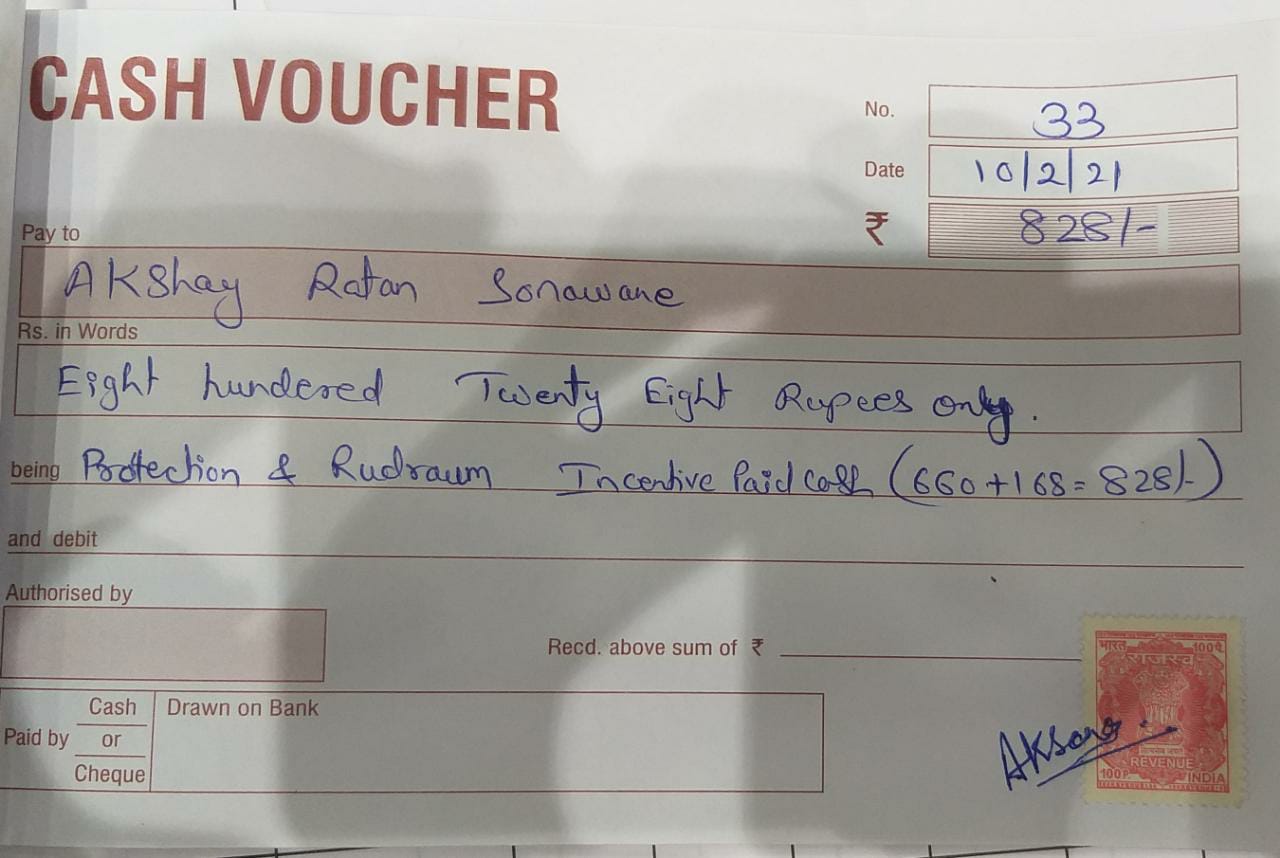 CASH VOUCHER
No. 33
Date 10/2/21
₹ 828/-
Pay to
AKShay Ratan Sonawane
Rs. in Words
Eight hundered Twenty Eight Rupees only.
being Protection & Rudraum Incentive Paid cash (660+168=828/-)
and debit
Authorised by
Recd. above sum of ₹
Paid by Cash or Cheque
Drawn on Bank
भारत 100पै.
राजस्व
सत्यमेव जयते
REVENUE
100P INDIA